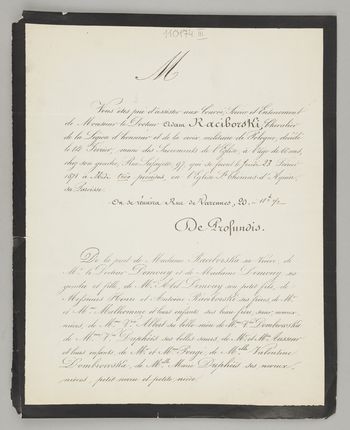 110174 III
M
Vous êtes prié d'assister aux Convoi, Service et Enterrement
de Monsieur le Docteur Adam Raciborski, Chevalier
de la Légion d'honneur et de la croix militaire de Pologne, décédé
le Février, muni des Sacrements de l'Église, à l'âge de ans,
chez son gendre, Rue Lafayette, 97, qui se feront le Jeudi 23 Février
1871 à Midi très précises, en l'Église St Thomas d'Aquin,
sa Paroisse.
On se réunira Rue de Varennes, 20 - 11h 1/2
De Profundis.
De la part de Madame Raciborska sa Veuve, de
Mr le Docteur et de Madame ses
gendre et fille, de Mr son petit fils, de
Messieurs Henri et Antoine Raciborski ses frères, de Mr
et Mme Malhomme et leurs enfants, ses beau frère, sœur, neveux,
nièces, de Mme Ve Albert sa belle mère, de Mme Ve Dombrowska
de Mme Ve Duphéis ses belles sœurs, de Mr et Mme
et leurs enfants, de Mr et Mme de Melle Valentine
Dombrowska, de Melle Marie Duphéis ses neveux,
nièces, petit neveu et petite nièce.